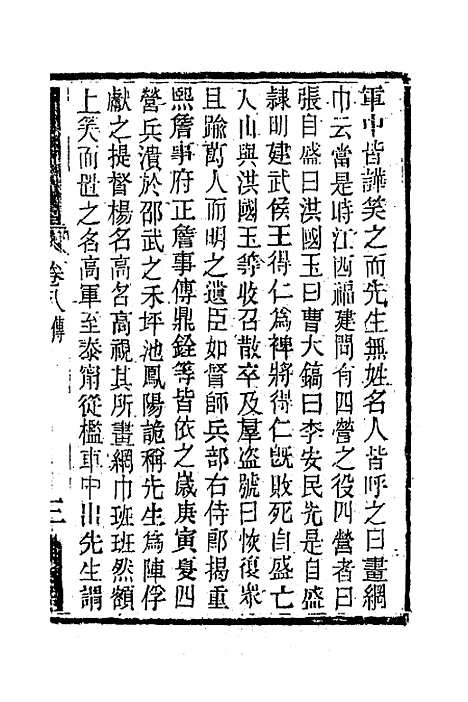 軍中皆譁笑之而先生無姓名人皆呼之曰畫網
巾云當是時江西福建間有四營之役四營者曰
張自盛曰洪國玉曰曹大鎬曰李安民先是自盛
隸明建武侯王得仁為裨將得仁旣敗死自盛亡
入山與洪國玉等收召散卒及羣盗號曰恢復衆
且踰萬人而明之遺臣如督師兵部右侍郎揭重
熙詹事府正詹事傅鼎銓等皆依之嵗庚寅夏四
營兵潰於邵武之禾坪池鳳陽詭稱先生為陣俘
獻之提督楊名高名高視其所畫網巾班班然額
上笑而置之名高軍至泰甯從檻車中出先生謂
卷八 傳
三